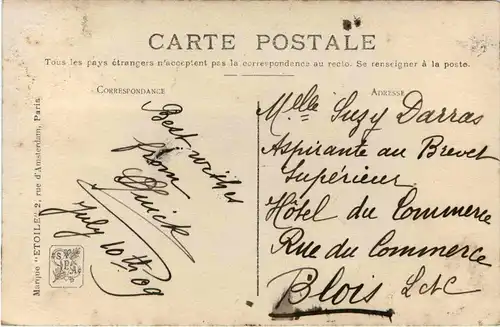 CARTE POSTALE
Tous les pays étrangers n'acceptent pas la correspondance au recto. Se renseigner à la poste.
CORRESPONDANCE
ADRESSE
Best wishes
from
July 10th 09
Melle Suzy Darras
Aspirante au Brevet
Supérieur
Hôtel du Commerce
Rue du Commerce
Blois L&C
Marque "ETOILE" 2, rue d'Amsterdam, Paris